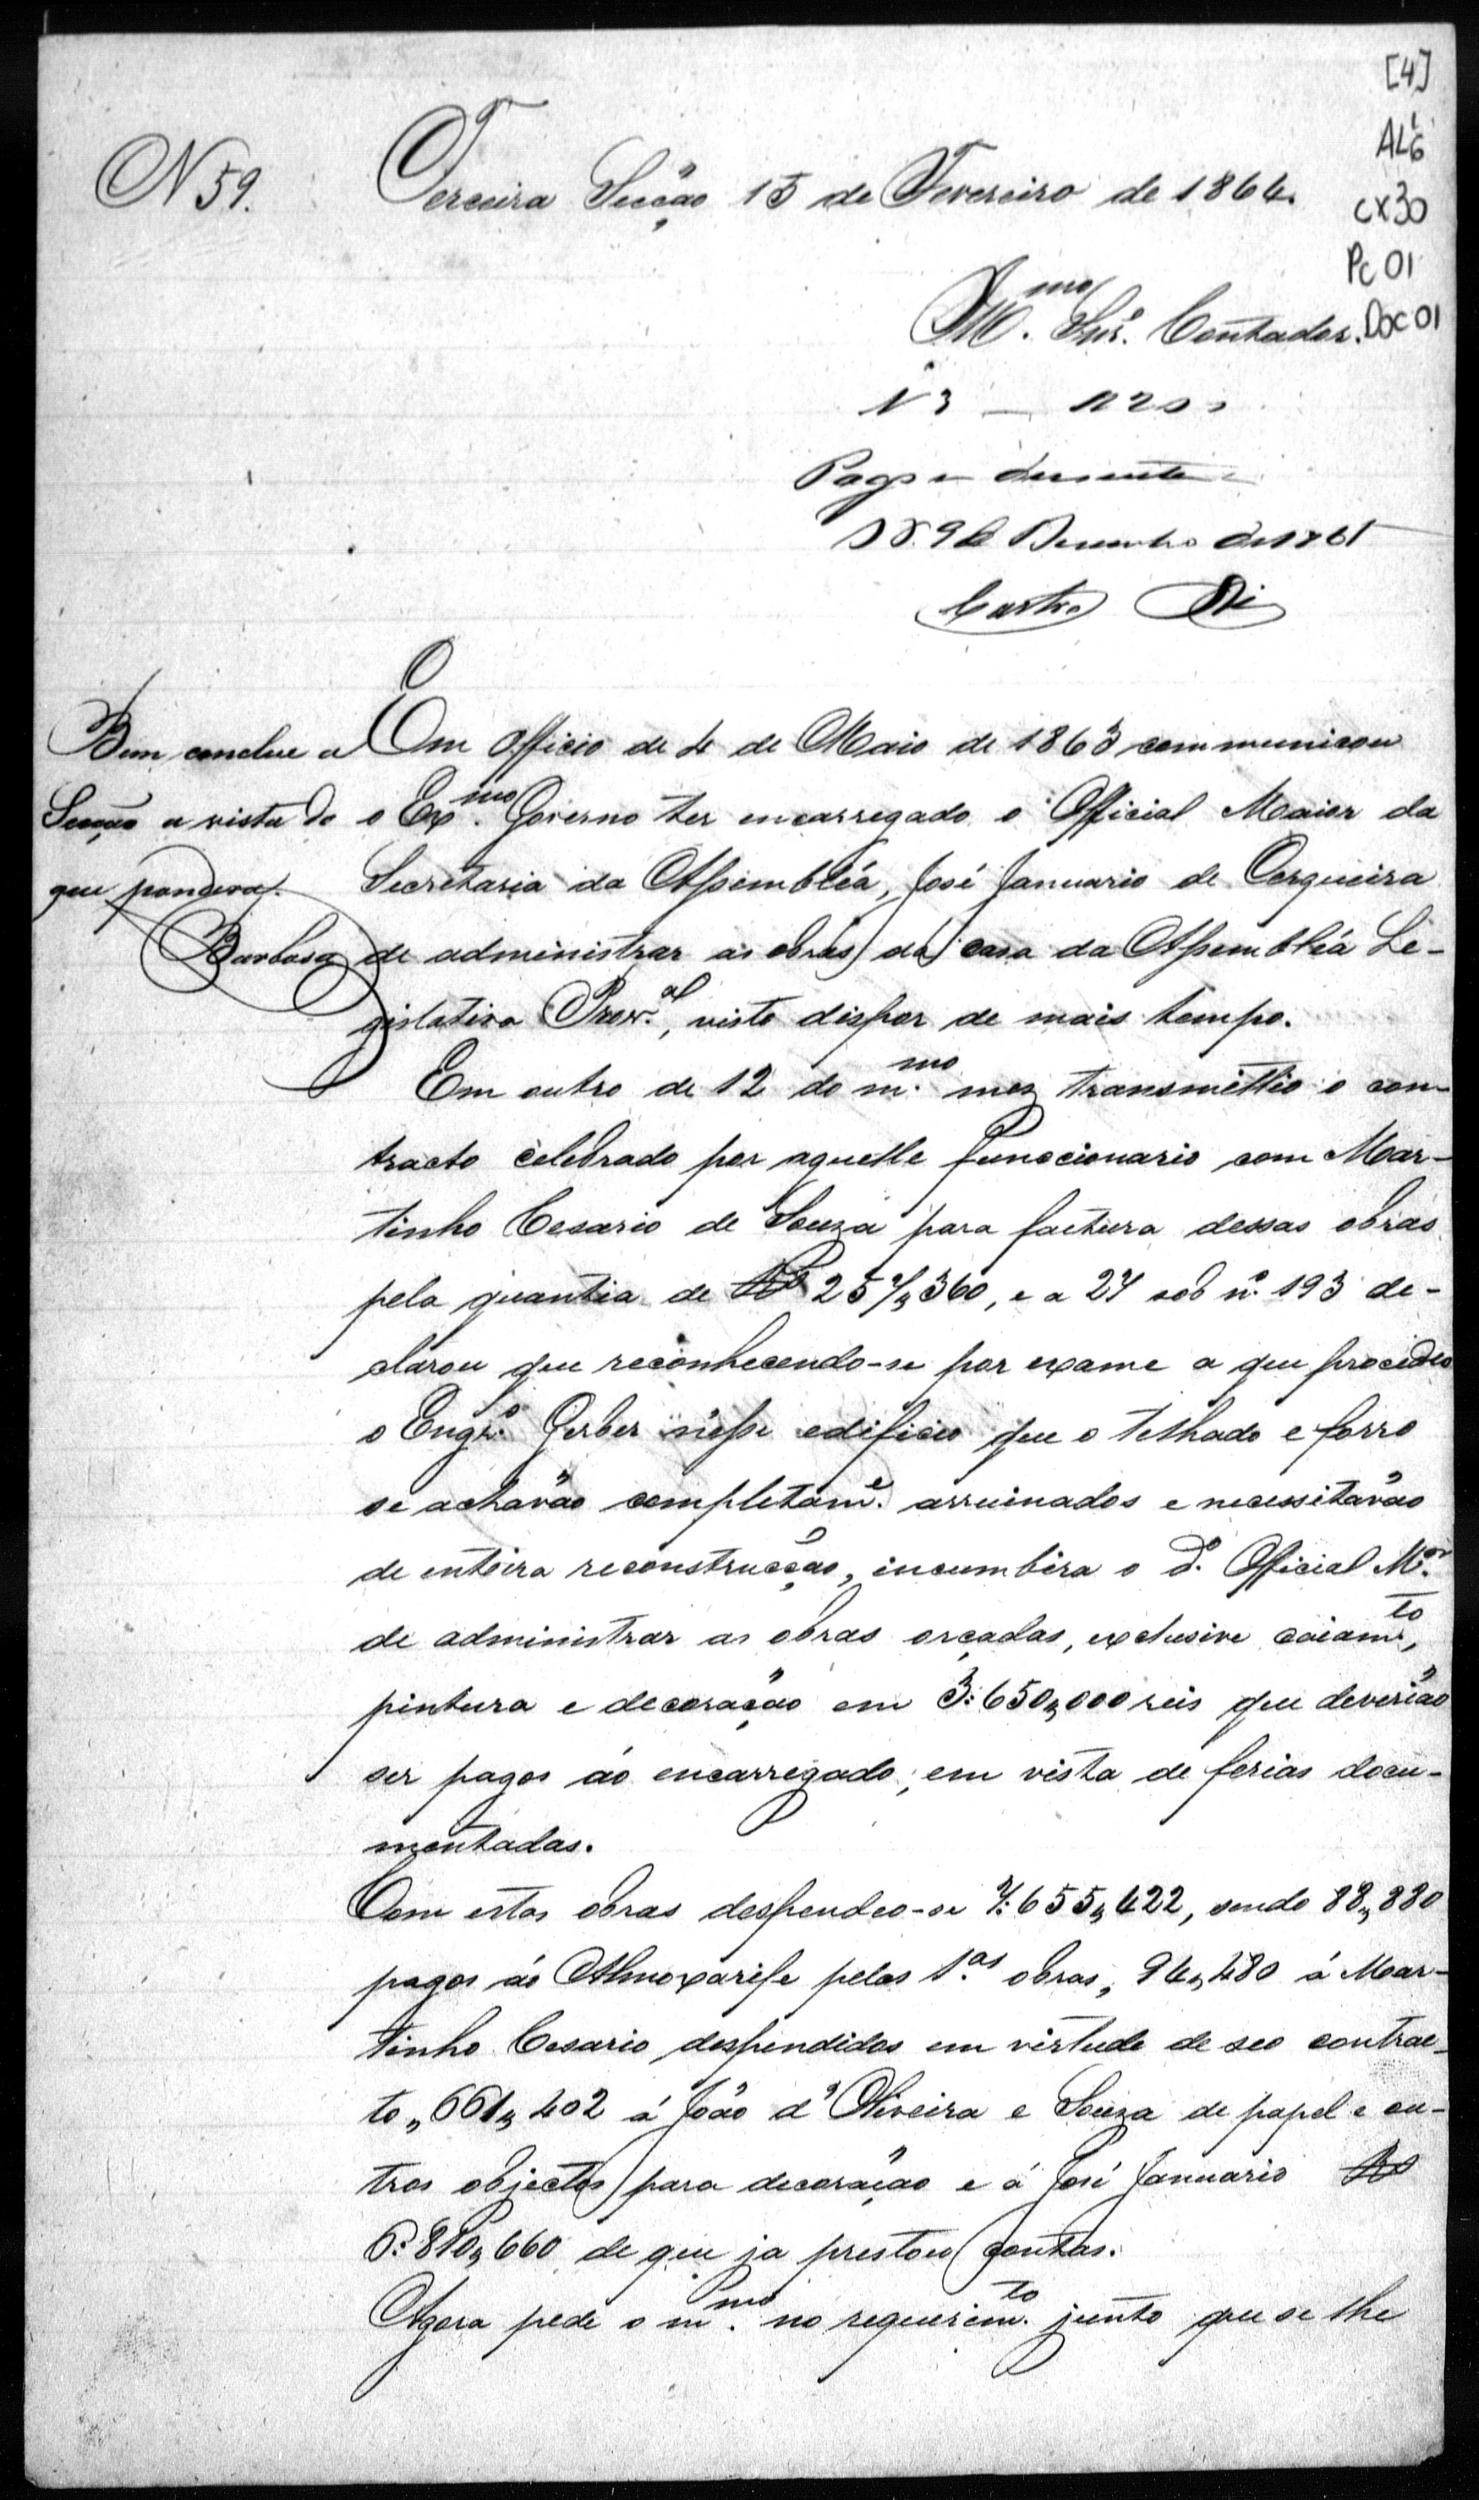 [4]
AL 1.6
CX30
Pc 01
Doc 01
N 59.
Terceira Secção 15 de Fevereiro de 1864.
Illmo. Snr. Contador.
N 3
Castro
Bem conclue a
Secção a vista do
que pondera.
Barbosa
Em officio de 4 de Maio de 1863 communicou
o Exmo. Governo ter encarregado o Official Maior da
Secretaria da Assembléa, José Januario de Cerqueira
de administrar as obras da casa da Assembléa Le-
gislativa Proval., visto dispor de mais tempo.
Em outro de 12 do mmo. mez transmittio o con-
tracto celebrado por aquelle funccionario com Mar-
tinho Cesario de Souza para factura dessas obras
pela quantia de Rs 257,360, e a 27 sob nº. 193 de-
clarou que reconhecendo-se por exame a que procedeo
o Engro. Gerber nesse edificio que o telhado e forro
se achavão completame. arruinados e necessitavão
de enteira reconstrucção, incumbira o do. Official Mor.
de administrar as obras orçadas, exclusive caiamto.,
pintura e decoração em 3:650,000 reis que deverião
ser pagos ao encarregado, em vista de ferias docu-
mentadas.
Com estas obras despendeo-se 7:655,422, sendo 88,880
pagos ao Almoxarife pelas 1.as obras, 94,480 á Mar-
tinho Cesario despendidos em virtude de seo contrac-
to, 661,402 á João d'Oliveira e Souza de papel e ou-
tros objectos para decoração e á José Januario Rs
6:810,660 de que ja prestou contas.
Agora pede o mmo. no requerimto. junto que se lhe